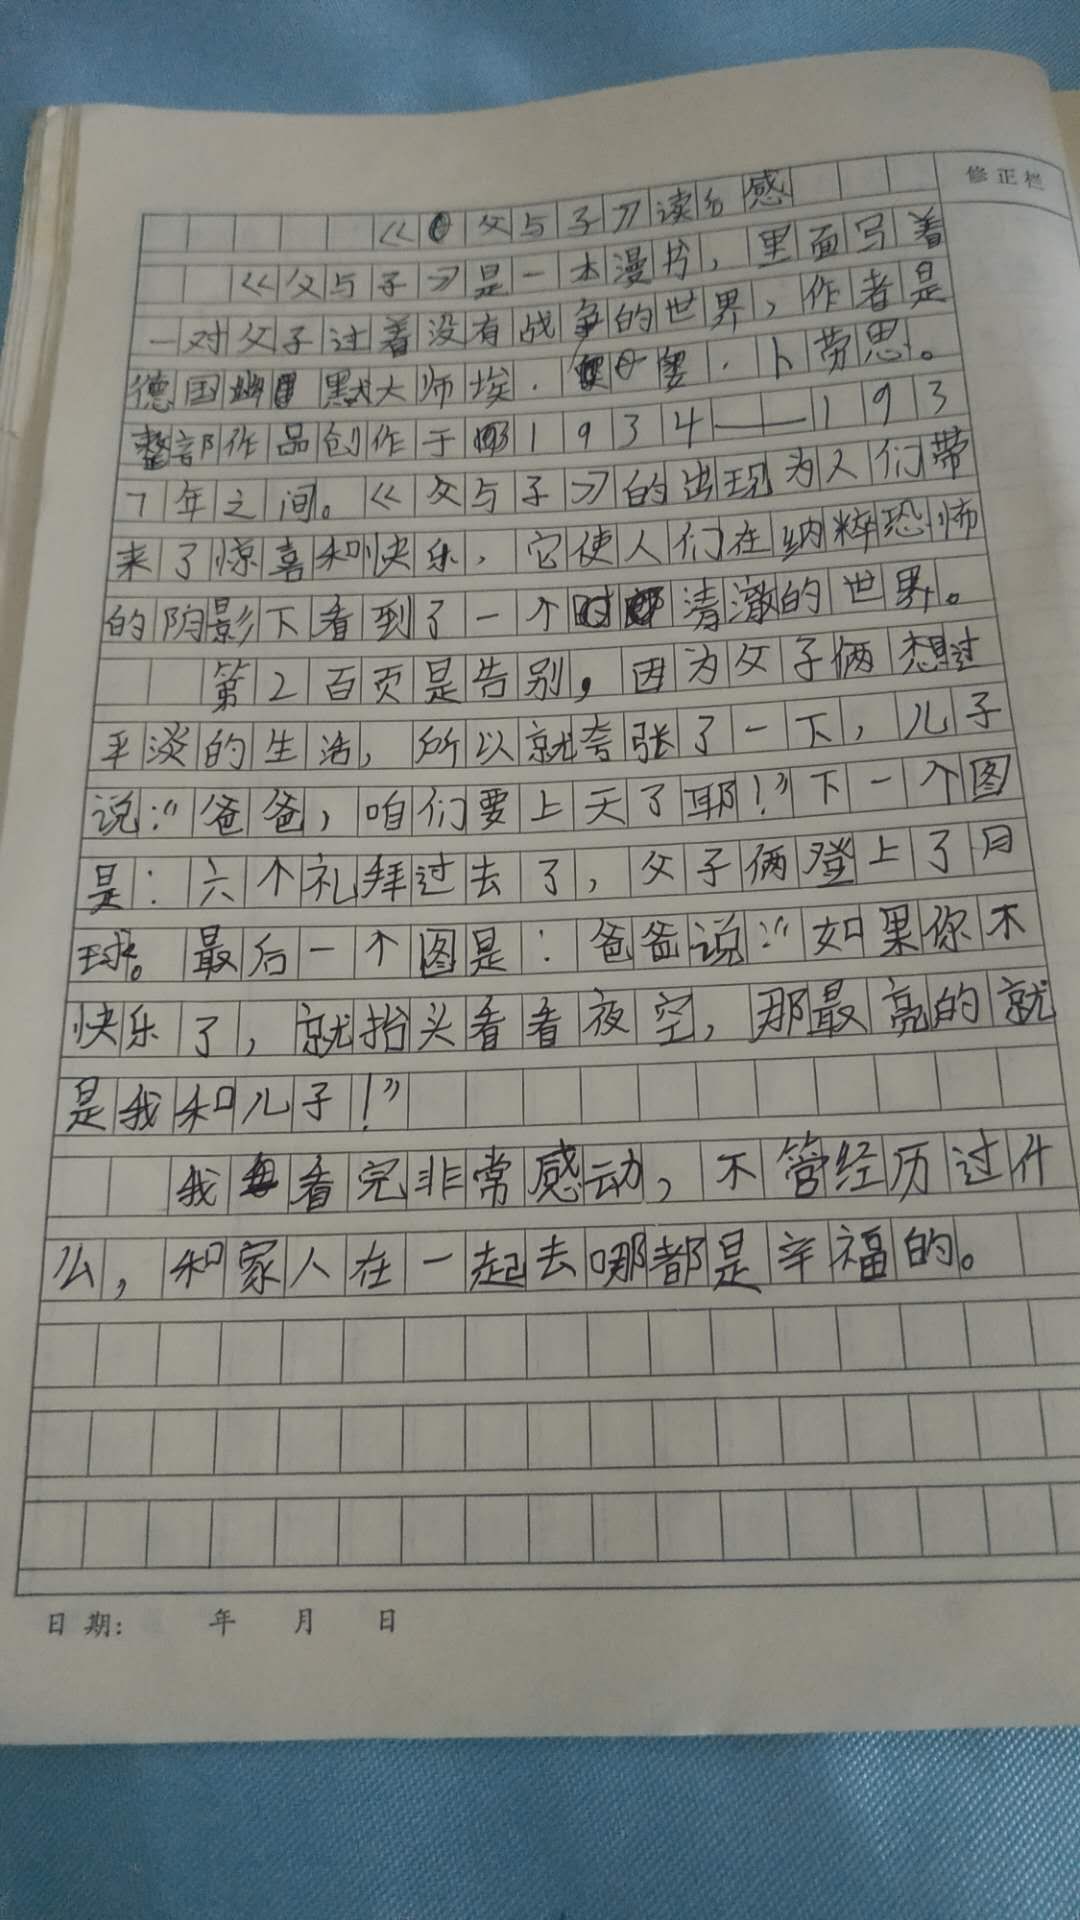 修正栏
《父与子》读后感
《父与子》是一本漫书，里面写着
一对父子过着没有战争的世界，作者是
德国幽默大师埃··卜劳恩。
整部作品创作于1934——193
7年之间。《父与子》的出现为人们带
来了惊喜和快乐，它使人们在纳粹恐怖
的阴影下看到了一个清澈的世界。
第2百页是告别，因为父子俩想过
平淡的生活，所以就夸张了一下，儿子
说：“爸爸，咱们要上天了耶！”下一个图
是：六个礼拜过去了，父子俩登上了月
球。最后一个图是：爸爸说：“如果你不
快乐了，就抬头看看夜空，那最亮的就
是我和儿子！”
我看完非常感动，不管经历过什
么，和家人在一起去哪都是幸福的。
日期： 年 月 日